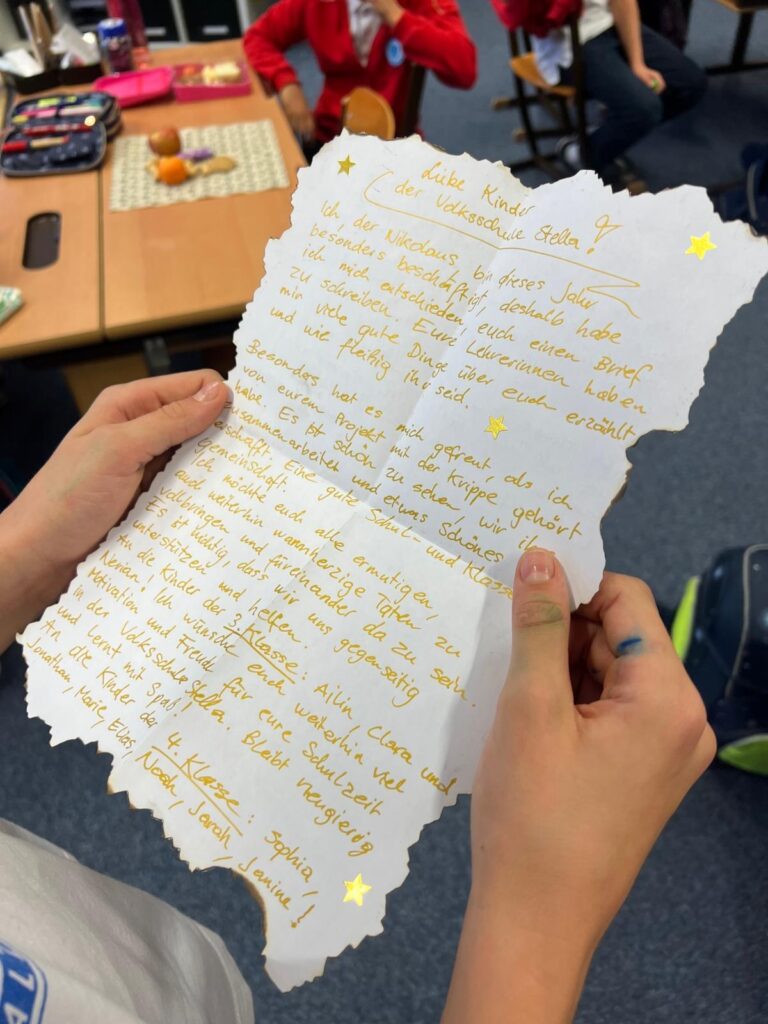 Liebe Kinder
der Volksschule Stella!
Ich der Nikolaus, bin dieses Jahr
besonders beschäftigt, deshalb habe
ich mich entschieden, euch einen Brief
zu schreiben. Eure Lehrerinnen haben
mir viele gute Dinge über euch erzählt
und wie fleißig ihr seid.
Besonders hat es mich gefreut, als ich
von eurem Projekt mit der Krippe gehört
habe. Es ist schön zu sehen, wir
zusammenarbeiten und etwas Schönes
erschafft. Eine gute Schul- und Klasse
gemeinschaft.
Ich möchte euch alle ermutigen,
auch weiterhin warmherzige Taten zu
vollbringen und füreinander da zu sein.
Es ist wichtig, dass wir uns gegenseitig
unterstützen und helfen.
An die Kinder der 3. Klasse: Ailin, Clara und
Nerina! Ich wünsche euch weiterhin viel
Motivation und Freude für eure Schulzeit
in der Volksschule Stella. Bleibt neugierig
und lernt mit Spaß!
An die Kinder der 4. Klasse: Sophia,
Jonathan, Marie, Elias, Noah, Sarah, Janine!